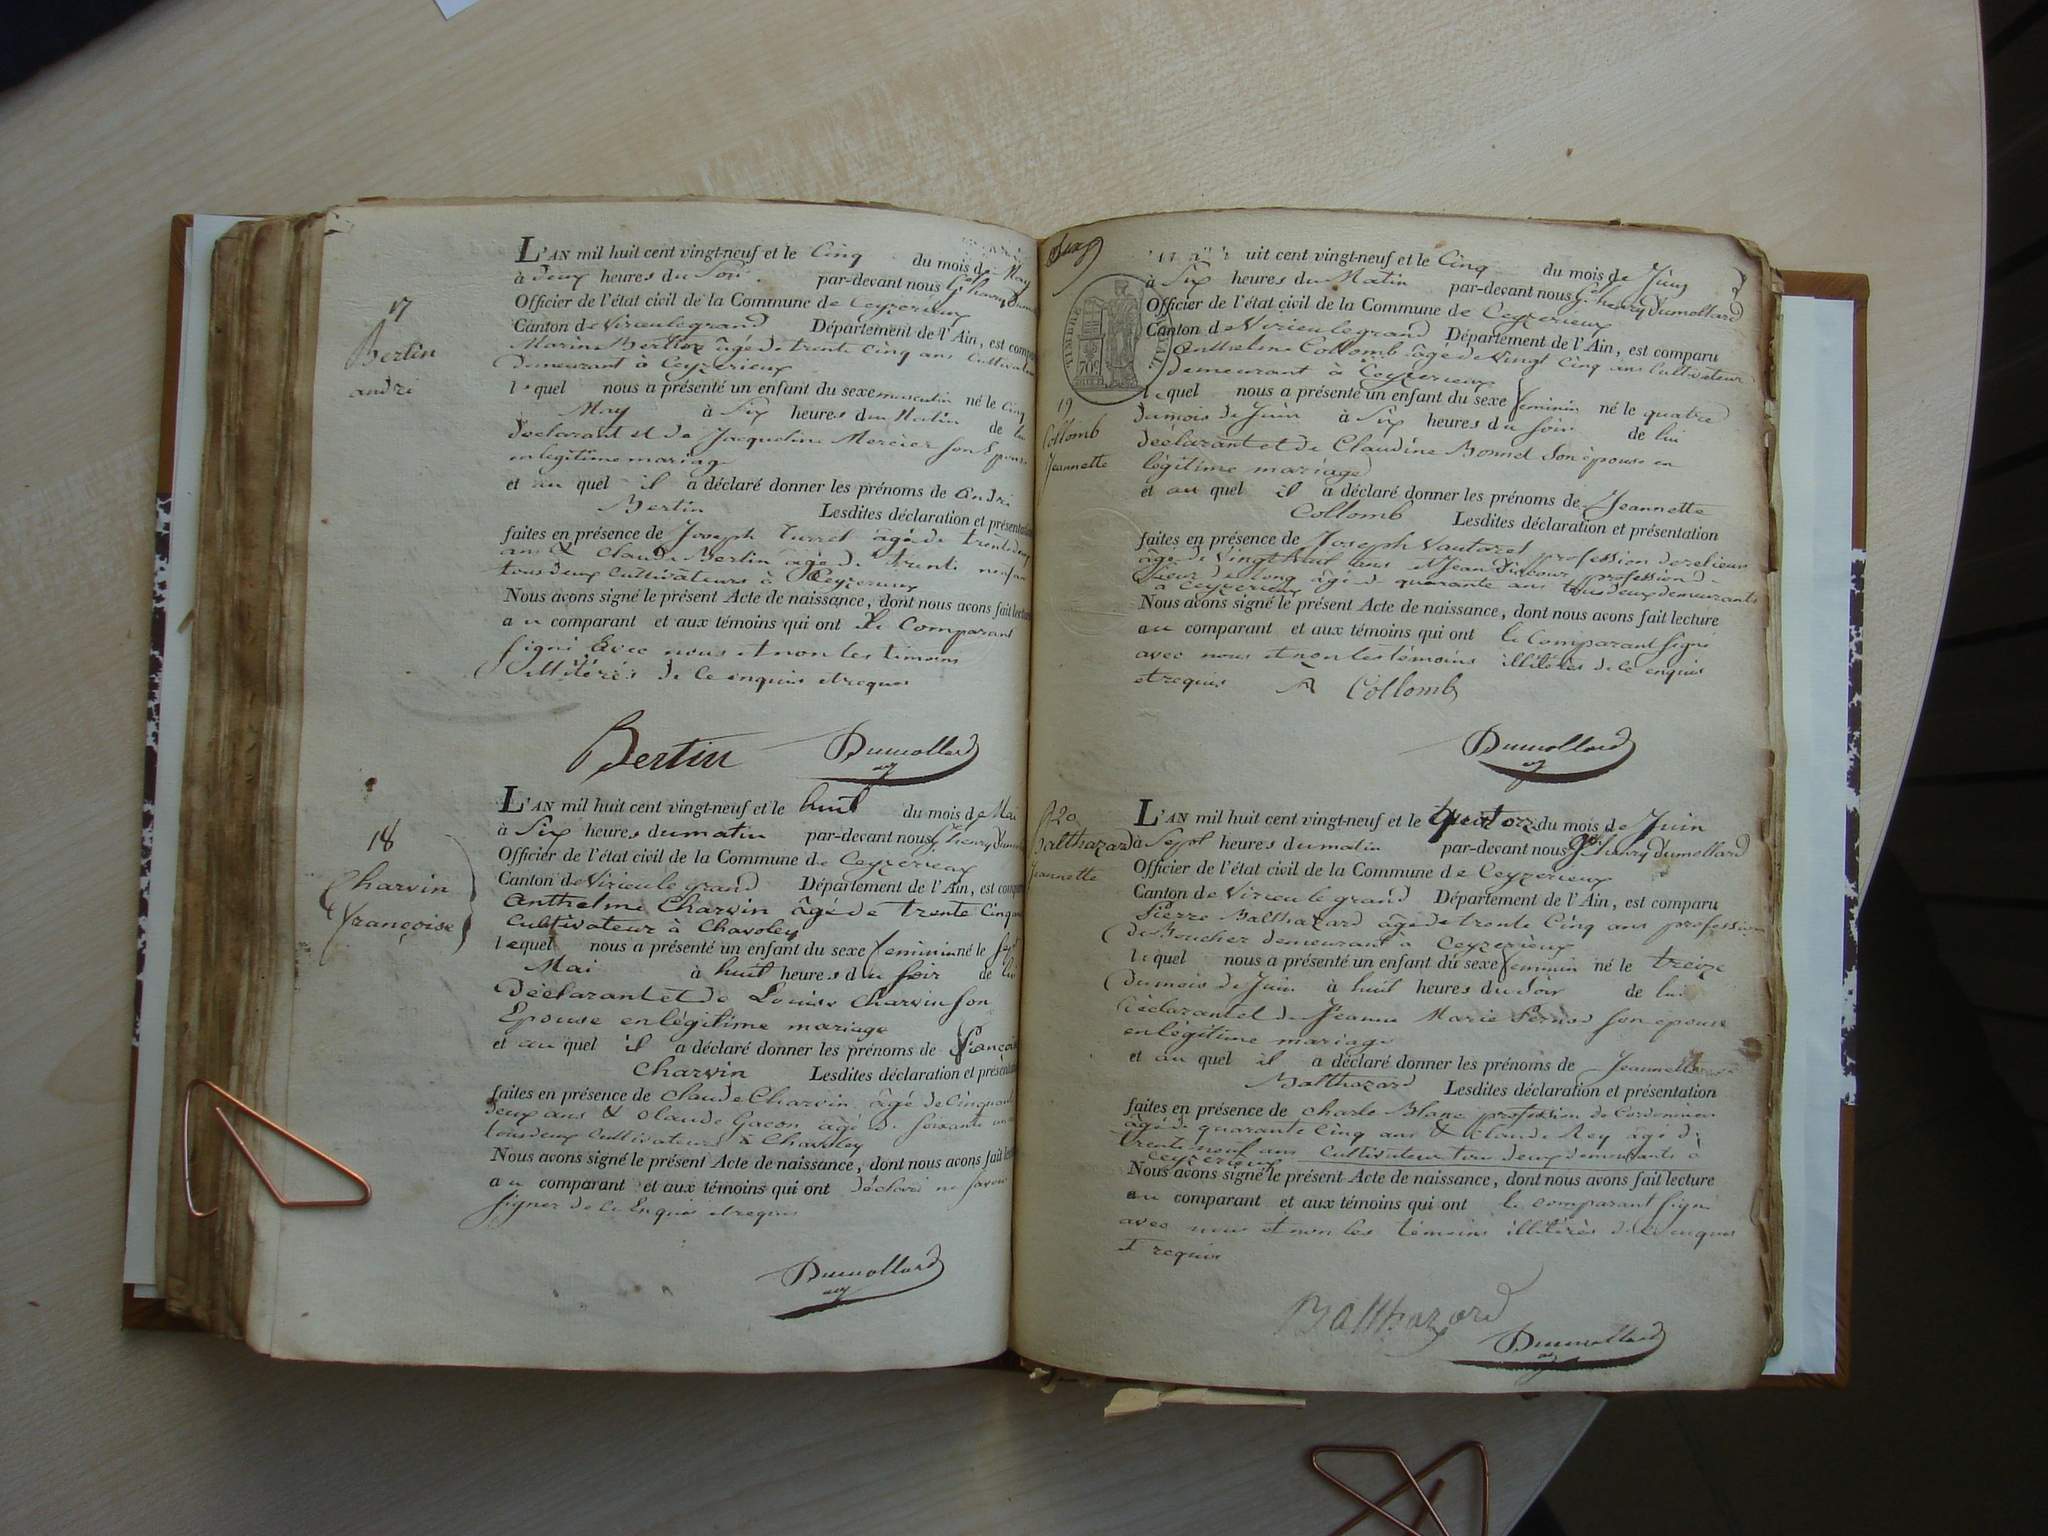 17
Bertin
andré
L'AN mil huit cent vingt-neuf et le Cinq du mois de May
à deux heures du Soir par-devant nous henry
Officier de l'état civil de la Commune de Ceyzerieux
Canton de Virieulegrand Département de l'Ain, est comparu
âgé de trente Cinq ans Cultivateur
Demeurant à Ceyzerieux
lequel nous a présenté un enfant du sexe masculin né le Cinq
May à Six heures du Matin de lui
Déclarant et de Jacqueline Mercier Son Epouse
en legitime mariage
et au quel il a déclaré donner les prénoms de andré
Bertin Lesdites déclaration et présentation
faites en présence de Joseph âgé de trente deux
ans & Claude Bertin âgé de trente neuf ans
tous deux Cultivateurs à Ceyzerieux
Nous avons signé le présent Acte de naissance, dont nous avons fait lecture
au comparant et aux témoins qui ont le Comparant
signé avec nous et non les témoins
illitérés de ce enquis et requis
Bertin Dumollard
18
Charvin
françoise
L'AN mil huit cent vingt-neuf et le huit du mois de Mai
à Six heures du matin par-devant nous henry
Officier de l'état civil de la Commune de Ceyzerieux
Canton de Virieulegrand Département de l'Ain, est comparu
anthelme Charvin âgé de trente Cinq ans
Cultivateur à Chavoley
lequel nous a présenté un enfant du sexe feminin né le Sept
Mai à huit heures du soir de lui
Déclarant et de Louise Charvin son
Epouse en légitime mariage
et au quel il a déclaré donner les prénoms de françoise
Charvin Lesdites déclaration et présentation
faites en présence de Claude Charvin âgé de Cinquante
deux ans & Claude Gacon âgé de soixante
tous deux Cultivateurs à Chavoley
Nous avons signé le présent Acte de naissance, dont nous avons fait lecture
au comparant et aux témoins qui ont déclaré ne savoir
signer de ce Enquis et requis
Dumollard
TIMBRE ROYAL
70c
19
Collomb
Jeannette
uit cent vingt-neuf et le Cinq du mois de Juin
à Six heures du Matin par-devant nous henry Dumollard
Officier de l'état civil de la Commune de Ceyzerieux
Canton de Virieulegrand Département de l'Ain, est comparu
Anthelme Collomb âgé de Vingt Cinq ans Cultivateur
Demeurant à Ceyzerieux
lequel nous a présenté un enfant du sexe feminin né le quatre
du mois de Juin à Six heures du soir de lui
déclarant et de Claudine Bonnet Son épouse en
légitime mariage
et au quel il a déclaré donner les prénoms de Jeannette
Collomb Lesdites déclaration et présentation
faites en présence de Joseph Vautaret profession de
âgé de Vingt huit ans et Jean profession de
Sieur de long âgé de quarante ans tous deux demeurants
à Ceyzerieux
Nous avons signé le présent Acte de naissance, dont nous avons fait lecture
au comparant et aux témoins qui ont le Comparant signé
avec nous et non les témoins illitérés de ce enquis
et requis A Collomb
Dumollard
20
Balthazard
Jeannette
L'AN mil huit cent vingt-neuf et le quatorze du mois de Juin
à Sept heures du matin par-devant nous henry Dumollard
Officier de l'état civil de la Commune de Ceyzerieux
Canton de Virieulegrand Département de l'Ain, est comparu
Pierre Balthazard âgé de trente Cinq ans profession
de Boucher demeurant a Ceyzerieux
lequel nous a présenté un enfant du sexe feminin né le treize
du mois de Juin à huit heures du Soir de lui
Déclarant et de Jeanne Marie Pernod son épouse
en légitime mariage
et au quel il a déclaré donner les prénoms de Jeannette
Balthazard Lesdites déclaration et présentation
faites en présence de charle Blanc profession de Cordonnier
âgé de quarante Cinq ans & Claude Rey âgé de
trente neuf ans Cultivateur tous deux demeurants à
Ceyzerieux
Nous avons signé le présent Acte de naissance, dont nous avons fait lecture
au comparant et aux témoins qui ont le comparant signé
avec nous et non les témoins illitérés de ce enquis
et requis
Balthazard
Dumollard